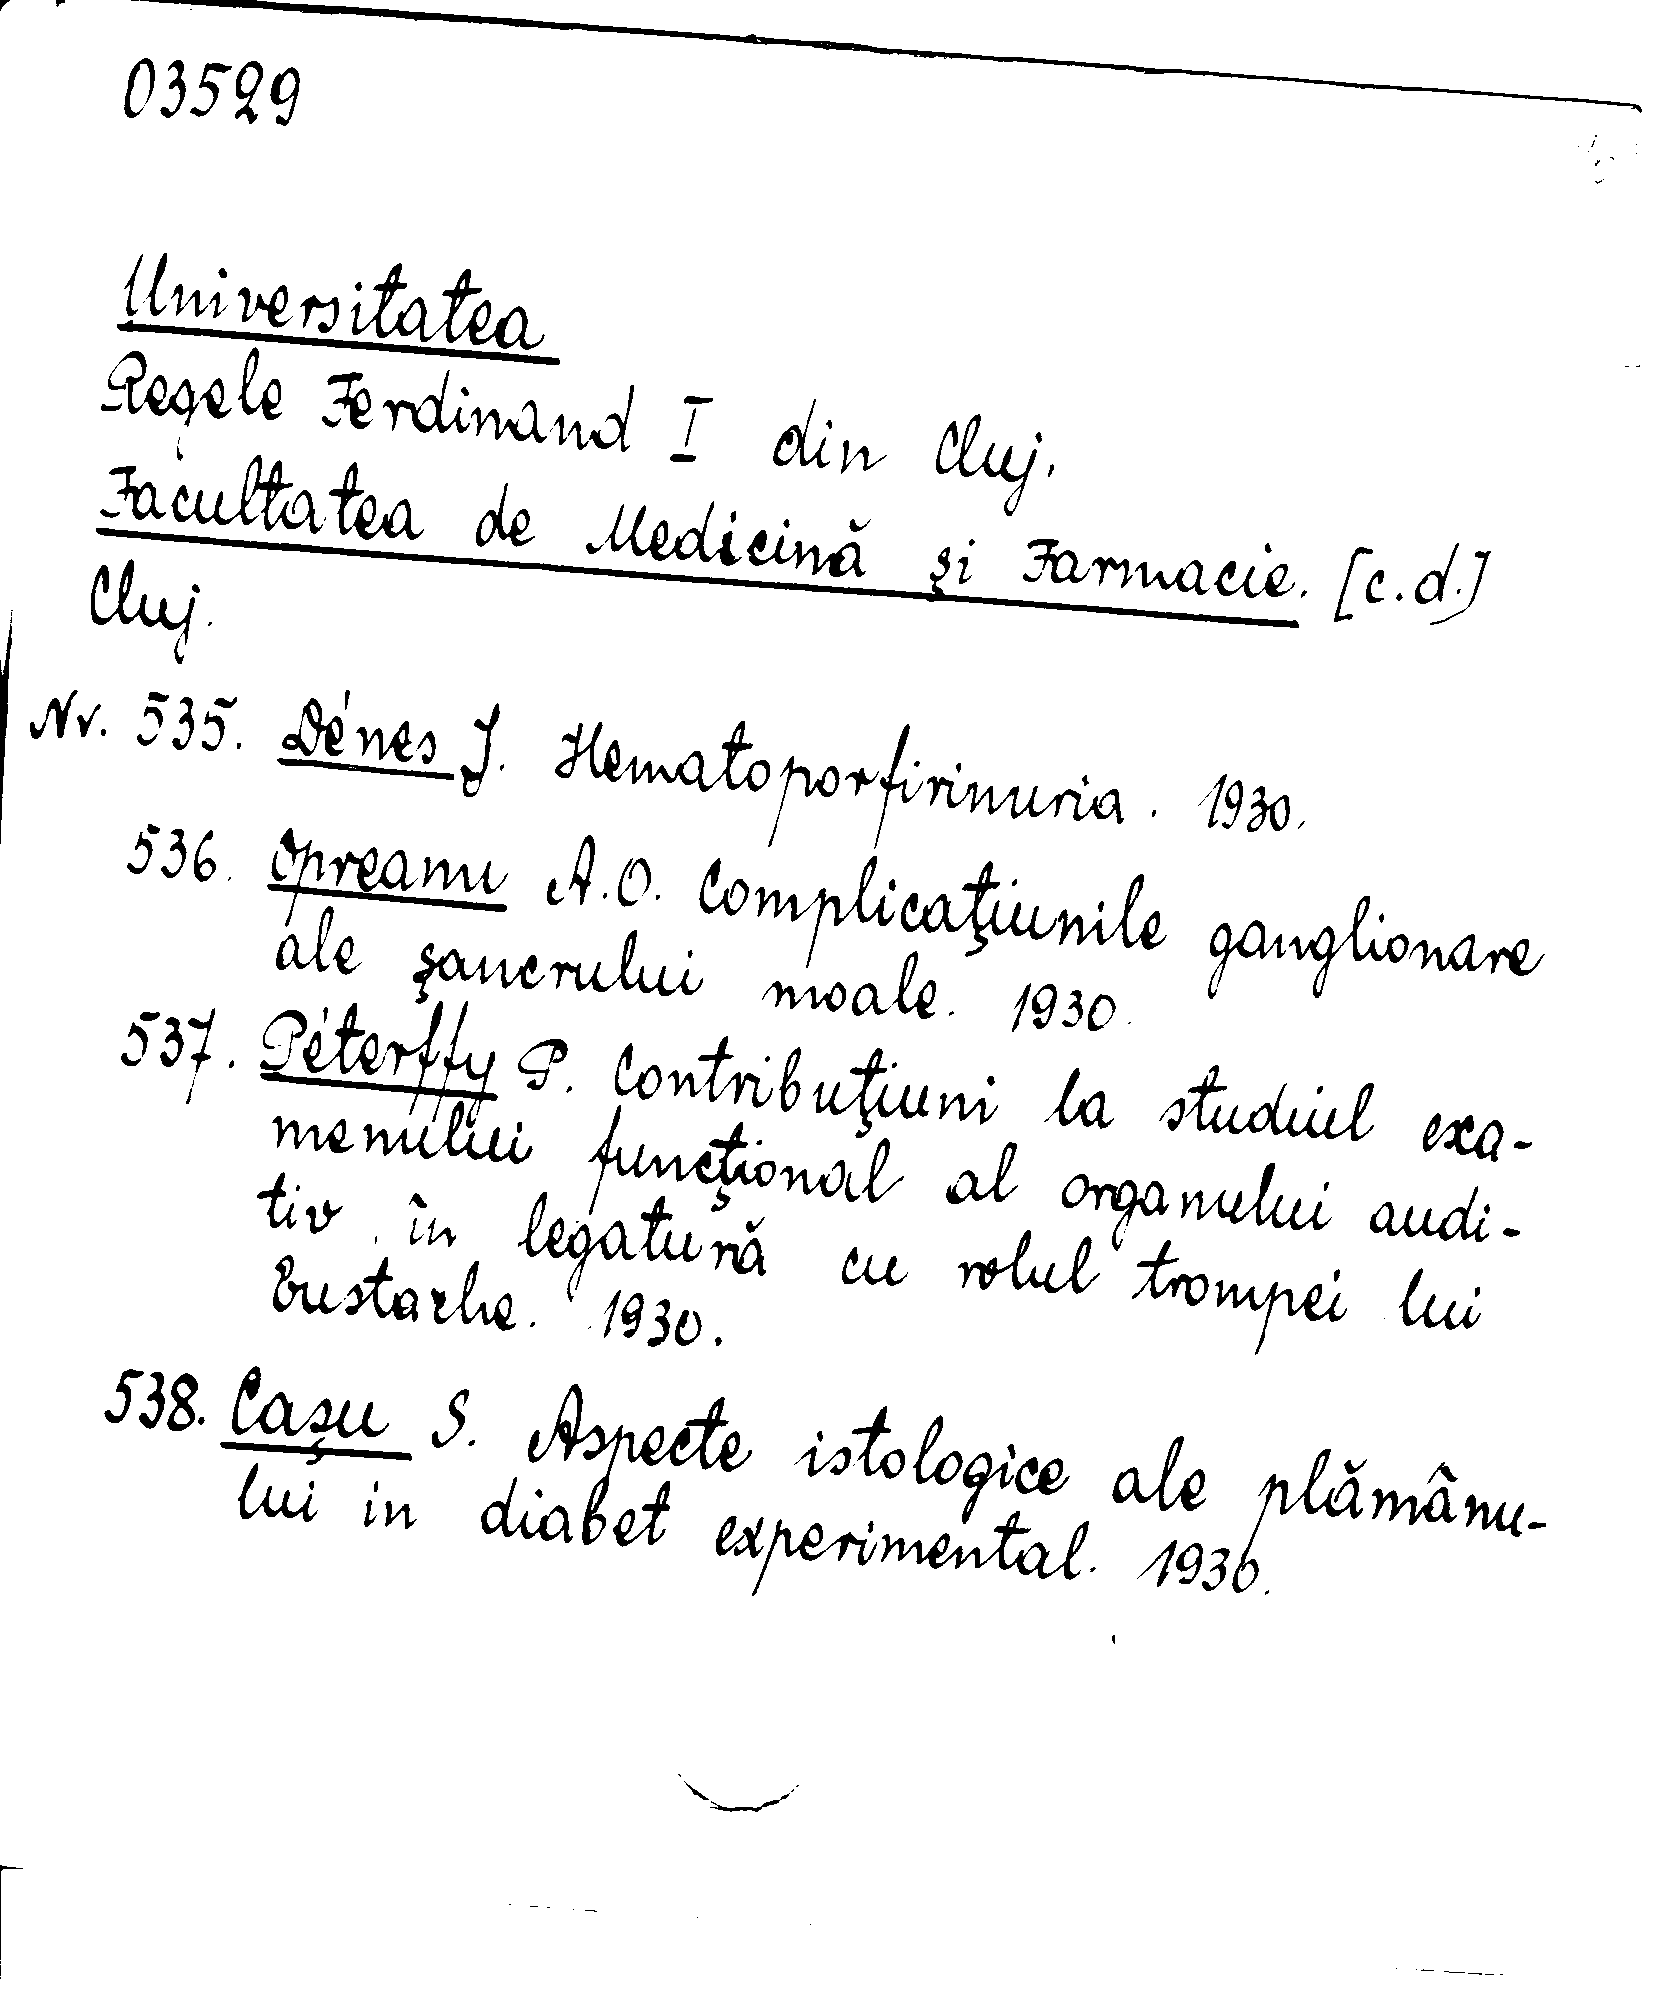 03529
Universitatea
Regele Ferdinand I din Cluj.
Facultatea de Medicină şi Farmacie. [c.d.]
Cluj.
Nr. 535. Dénes J. Hematoporfirinuria. 1930.
536. Opreanu A.O. Complicaţiunile ganglionare
ale şancrului moale. 1930.
537. Péterffy P. Contribuţiuni la studiul exa-
menului funcţional al organului audi-
tiv în legatură cu rolul trompei lui
Eustache. 1930.
538. Caşu S. Aspecte istologice ale plămânu-
lui in diabet experimental. 1930.